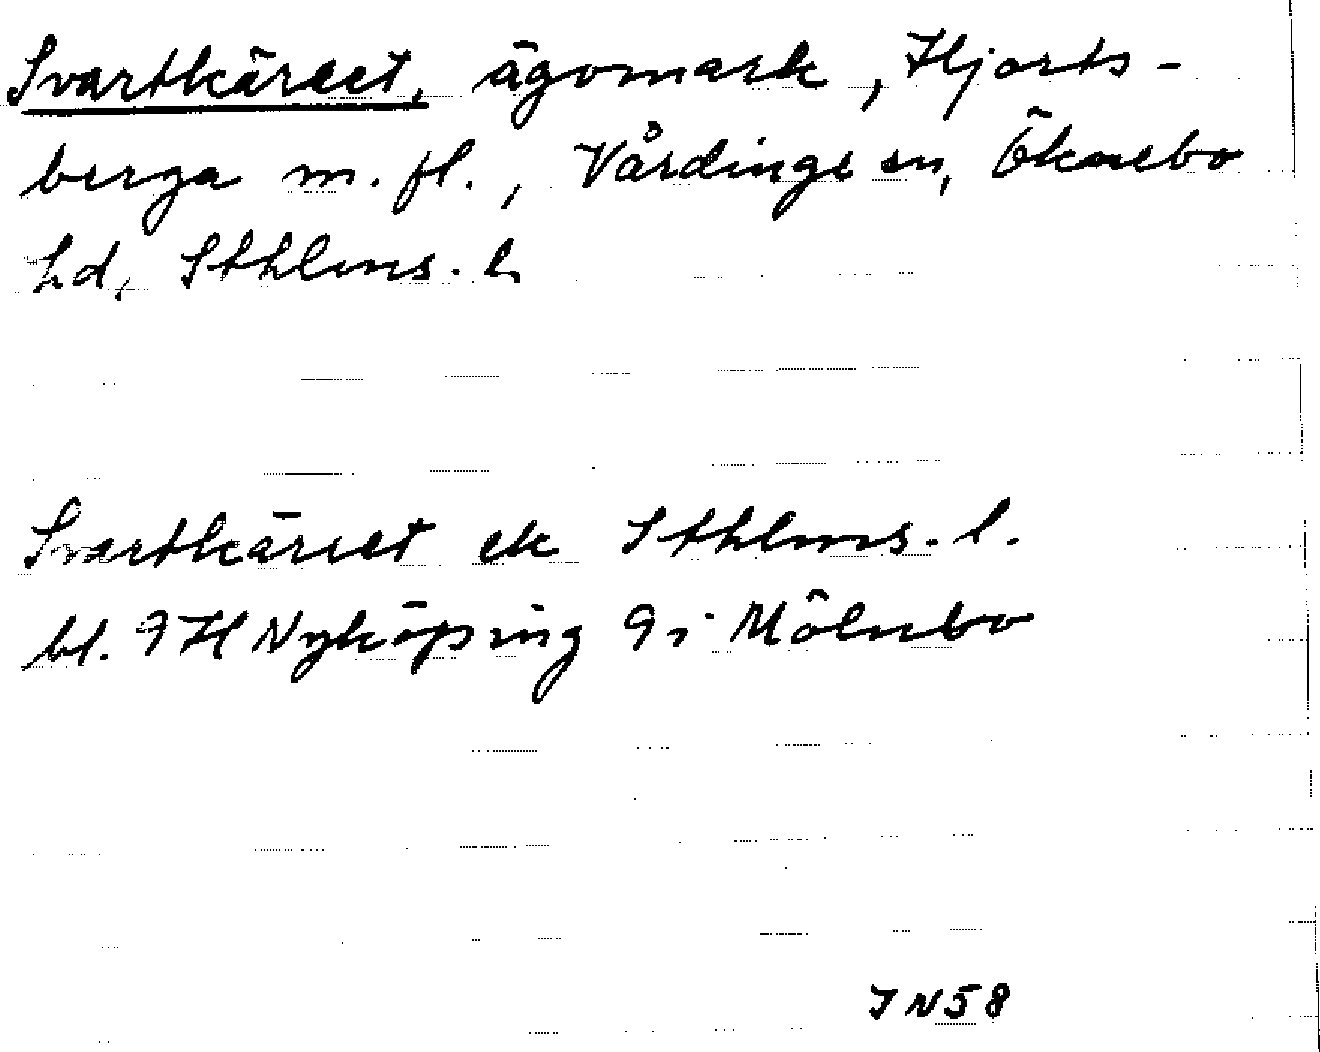 Svartkärret, ägomark, Hjorts-
berga m. fl., Vårdinge sn, Öknebo
hd, Sthlms. l.
Svartkärret ek Sthlms. l.
bl. 9H Nyköping 9i Mölnbo
JN58